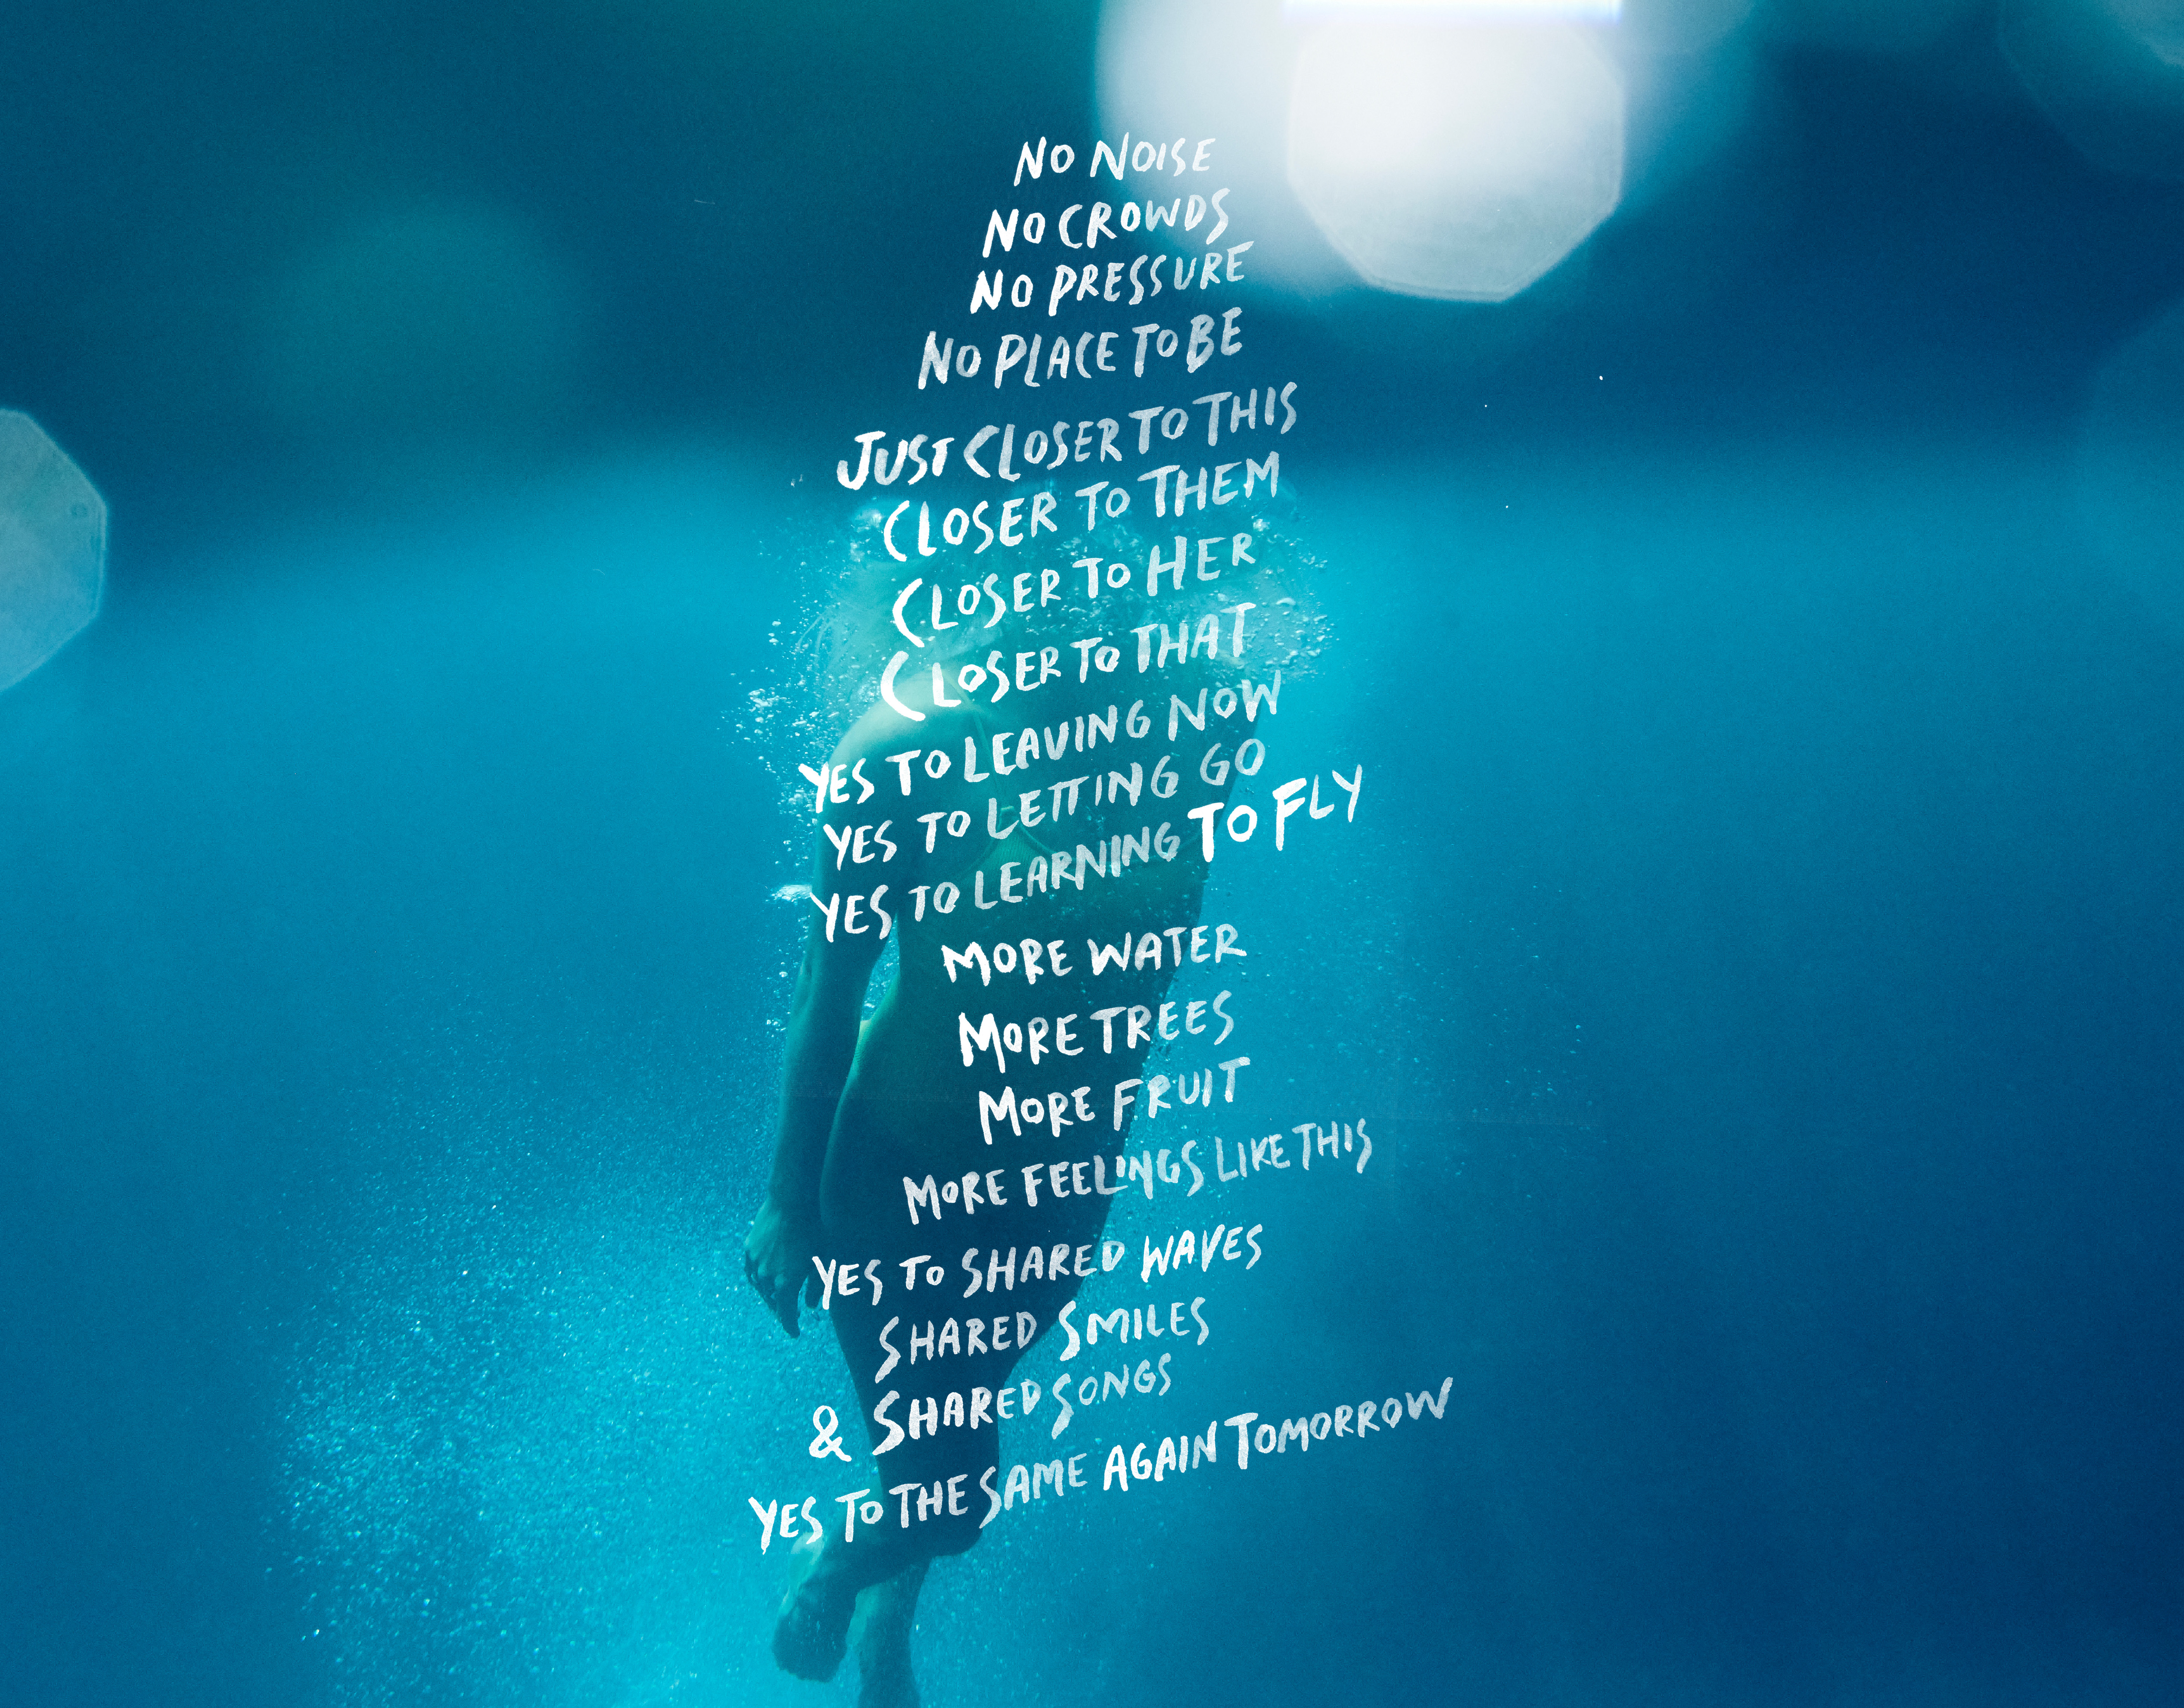 NO NOISE
NO CROWDS
NO PRESSURE
NO PLACE TO BE
JUST CLOSER TO THIS
CLOSER TO THEM
CLOSER TO HER
CLOSER TO THAT
YES TO LEAVING NOW
YES TO LETTING GO
YES TO LEARNING TO FLY
MORE WATER
MORE TREES
MORE FRUIT
MORE FEELINGS LIKE THIS
YES TO SHARED WAVES
SHARED SMILES
& SHARED SONGS
YES TO THE SAME AGAIN TOMORROW